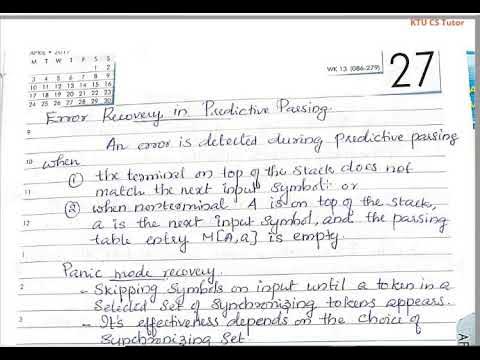 KTU CS Tutor
APRIL • 2017
M T W T F S S
1 2
3 4 5 6 7 8 9
10 11 12 13 14 15 16
17 18 19 20 21 22 23
24 25 26 27 28 29 30
WK 13 (086-279)
27
Error Recovery in Predictive Parsing.
9
An error is detected during predictive parsing
10 when
① the terminal on top of the stack does not
11
match the next input symbol. or
12 ② when nonterminal A is on top of the stack,
a is the next input symbol, and the parsing
1
table entry M[A,a] is empty.
Panic mode recovery.
2 - Skipping symbols on input until a token in a
selected set of synchronizing tokens appears.
3 - It's effectiveness depends on the choice of
synchronizing set